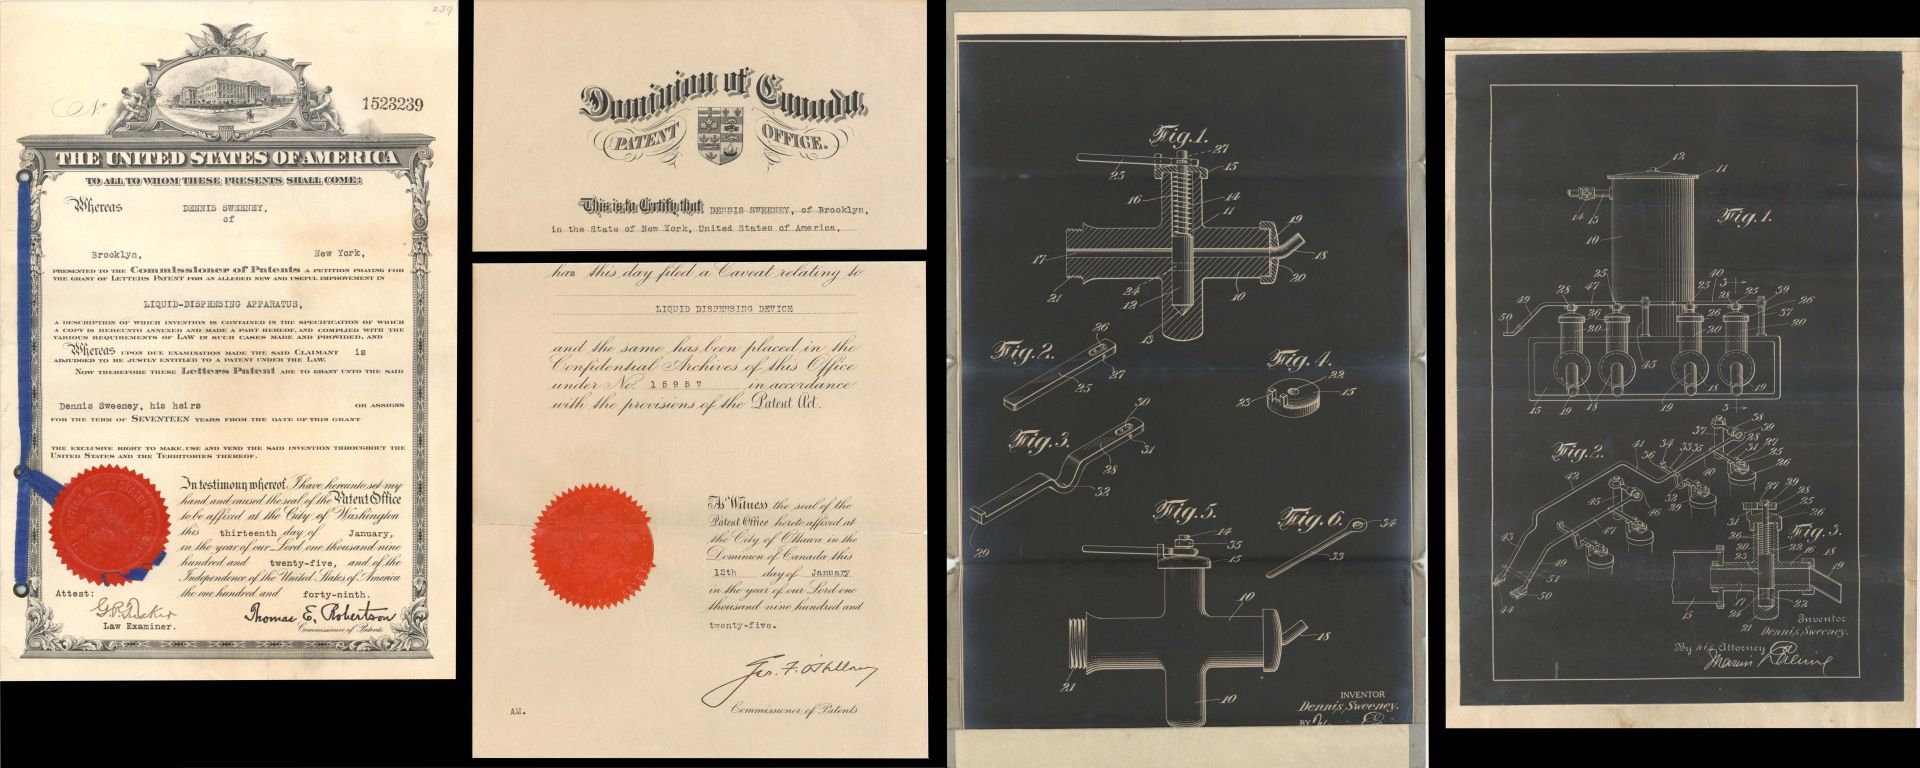 239
No
1523239
THE UNITED STATES OF AMERICA
TO ALL TO WHOM THESE PRESENTS SHALL COME:
Whereas DENNIS SWEENEY,
of
Brooklyn, New York,
PRESENTED TO THE Commissioner of Patents A PETITION PRAYING FOR
THE GRANT OF LETTERS PATENT FOR AN ALLEGED NEW AND USEFUL IMPROVEMENT IN
LIQUID-DISPENSING APPARATUS,
A DESCRIPTION OF WHICH INVENTION IS CONTAINED IN THE SPECIFICATION OF WHICH
A COPY IS HEREUNTO ANNEXED AND MADE A PART HEREOF, AND COMPLIED WITH THE
VARIOUS REQUIREMENTS OF LAW IN SUCH CASES MADE AND PROVIDED, AND
Whereas UPON DUE EXAMINATION MADE THE SAID CLAIMANT is
ADJUDGED TO BE JUSTLY ENTITLED TO A PATENT UNDER THE LAW.
NOW THEREFORE THESE Letters Patent ARE TO GRANT UNTO THE SAID
Dennis Sweeney, his heirs OR ASSIGNS
FOR THE TERM OF SEVENTEEN YEARS FROM THE DATE OF THIS GRANT
THE EXCLUSIVE RIGHT TO MAKE, USE AND VEND THE SAID INVENTION THROUGHOUT THE
UNITED STATES AND THE TERRITORIES THEREOF.
In testimony whereof I have hereunto set my
hand and caused the seal of the Patent Office
to be affixed at the City of Washington
this thirteenth day of January,
in the year of our Lord one thousand nine
hundred and twenty-five, and of the
Independence of the United States of America
the one hundred and forty-ninth.
Attest:
Law Examiner.
Thomas E. Robertson
Commissioner of Patents
Dominion of Canada,
PATENT OFFICE.
This is to Certify that DENNIS SWEENEY, of Brooklyn,
in the State of New York, United States of America,
has this day filed a Caveat relating to
LIQUID DISPENSING DEVICE
and the same has been placed in the
Confidential Archives of this Office
under No. 15957 in accordance
with the provisions of the Patent Act.
As Witness the seal of the
Patent Office hereto affixed at
the City of Ottawa in the
Dominion of Canada this
12th day of January
in the year of our Lord one
thousand nine hundred and
twenty-five.
Geo. F. O'Halloran
Commissioner of Patents
AM.
Fig.1.
27
25
15
16
14
11
19
17
18
24
12
10
20
21
13
Fig.2.
26
25
27
Fig.4.
22
23
15
Fig.3.
30
31
28
32
29
Fig.5.
14
35
15
10
18
21
10
Fig.6.
34
33
INVENTOR
Dennis Sweeney.
BY
12
11
14
15
Fig.1.
10
25
40
49
28
47
26
25
3
28
25
39
26
37
50
20
26
26
20
20
45
15
19
18
19
18
19
3
Fig.2.
41
34
33
35
37
38
39
28
27
31
25
26
42
36
40
45
32
29
46
47
43
44
51
50
Fig.3.
39
28
25
26
31
26
20
25
22
16
18
19
15
17
24
22
21
Inventor
Dennis Sweeney.
By his Attorney